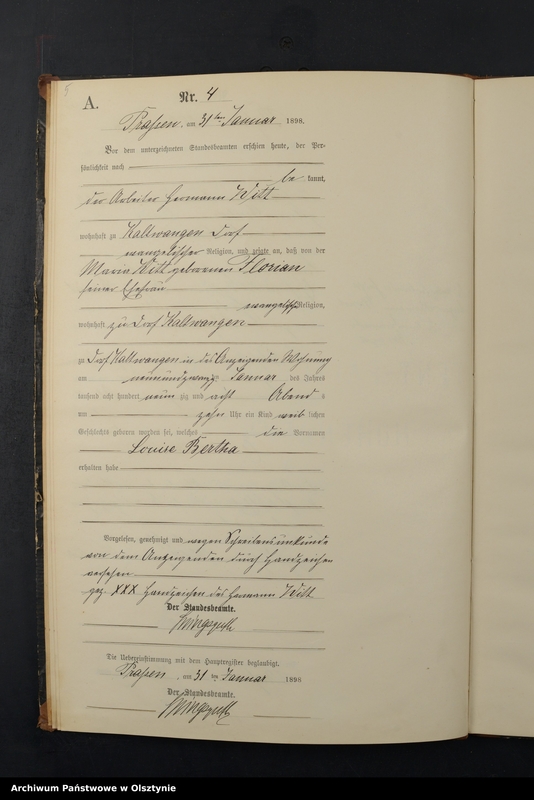 5
A.
Nr. 4
Prassen, am 31ten Januar 1898.
Vor dem unterzeichneten Standesbeamten erschien heute, der Per-
sönlichkeit nach
be kannt,
der Arbeiter Hermann Witt
wohnhaft zu Kaltwangen Dorf
evangelischer Religion, und zeigte an, daß von der
Maria Witt geborenen Florian
seiner Ehefrau
evangelisch Religion,
wohnhaft zu Dorf Kaltwangen
zu Dorf Kaltwangen in des Anzeigenden Wohnung
am neunundzwanzig Januar des Jahres
tausend acht hundert neun zig und acht Abend s
um zehn Uhr ein Kind weib lichen
Geschlechts geboren worden sei, welches die Vornamen
Louise Bertha
erhalten habe
Vorgelesen, genehmigt und wegen Schreibensunkunde
von dem Anzeigenden durch Handzeichen
versehen
gez XXX Handzeichen des Hermann Witt
Der Standesbeamte.
Die Uebereinstimmung mit dem Hauptregister beglaubigt.
Prassen, am 31 ten Januar 1898
Der Standesbeamte.
Archiwum Państwowe w Olsztynie